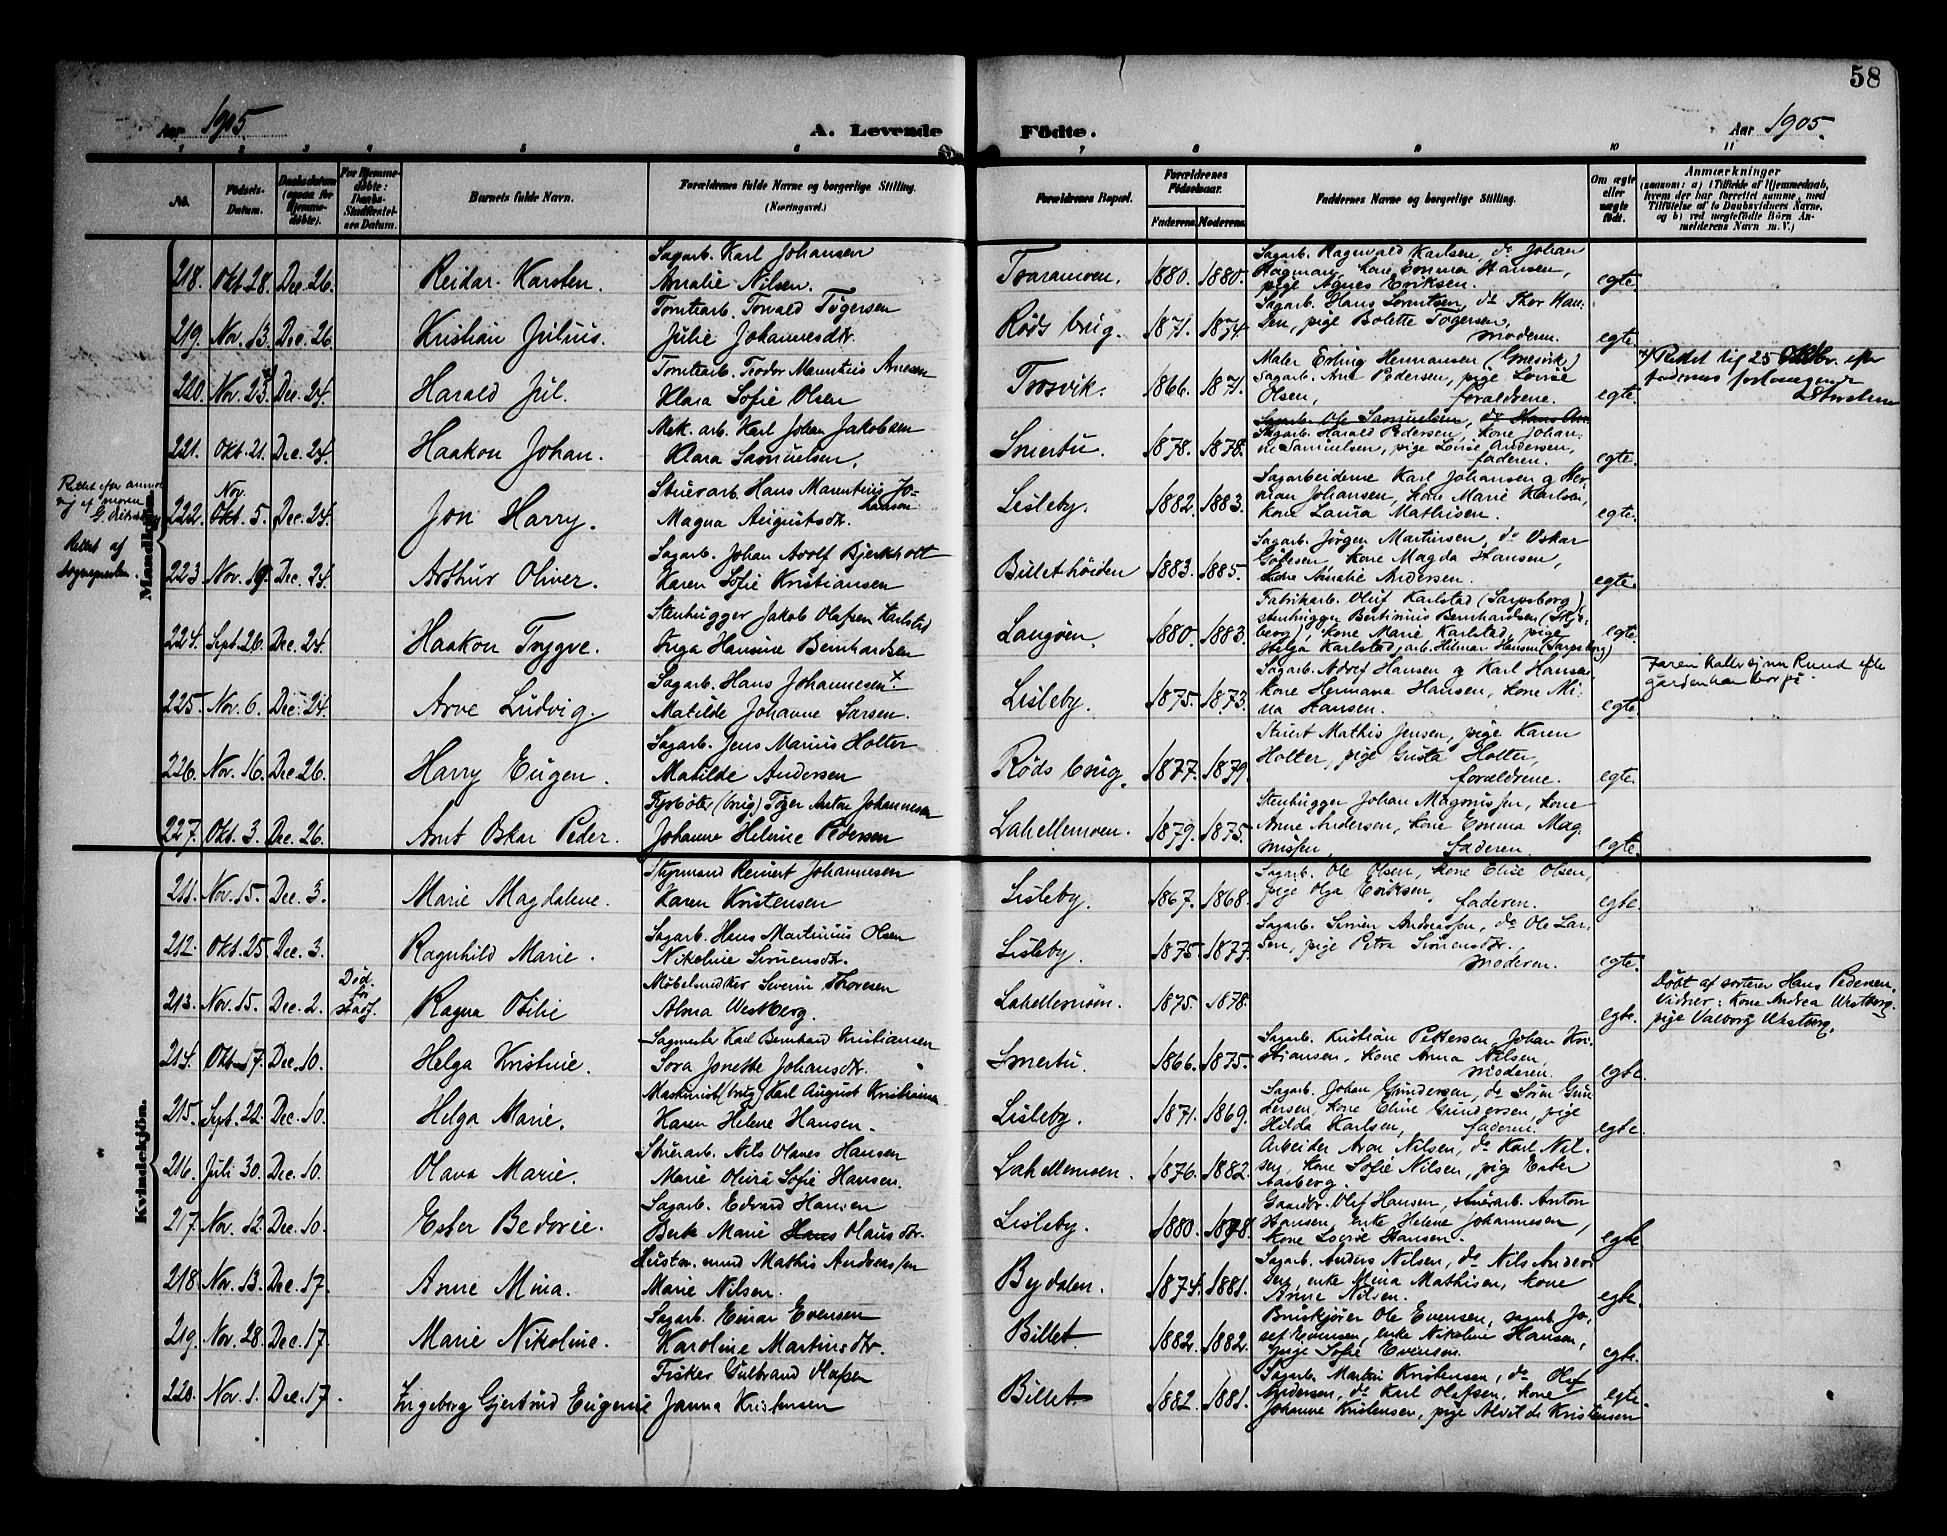 58
Aar 1905 A. Levende Födte. Aar 1905.
1 2 3 4 5 6 7 8 9 10 11
No. Födsels-Datum. Daabsdatum (ogsaa for Hjemme-döbte). For Hjemme-döbte: Daabs-Stadfæstel-ses Datum. Barnets fulde Navn. Forældrenes fulde Navne og borgerlige Stilling. (Næringsvei.) Forældrenes Bopæl. Forældrenes Födselsaar. Faderens Moderens Faddernes Navne og borgerlige Stilling. Om ægte eller uægte födt. Anmærkninger (saasom: a) i Tilfælde af Hjemmedaab, hvem der har forrettet samme, med Tilföielse af to Daabsvidners Navne, og b) ved uægtefödte Börn An-melderens Navn m. V.)
Mandkjön.
218. Okt. 28. Dec. 26. Reidar Karsten. Sagarb. Karl Johansen
Amalie Nilsen.
Tvaramoen. 1880. 1880. Sagarb. Ragnvald Karlsen, do Johan
Hagman, kone Emma Hansen,
pige Agnes Eriksen. egte.
219. Nov. 13. Dec. 26. Kristian Julius. Tomtearb. Torvald Tøgersen
Julie Johannesdtr.
Røds brug. 1871. 1874. Sagarb. Hans Lorentsen, do Thor Han-
sen, pige Bolette Tøgersen,
moderen. egte.
220. Nov. 23. Dec. 24. Harald Jul. Tomtearb. Teodor Marentius Arnesen
Klara Sofie Olsen
Trosvik. 1866. 1871. Maler Erling Hermansen (Gresvik)
Sagarb. Arne Pedersen, pige Lovise
Olsen, forældrene. egte.
x) Rettet til 25 Oktbr. efter
faderens forlangende
221. Okt. 21. Dec. 24. Haakon Johan. Mek. arb. Karl Johan Jakobsen
Klara Samuelsen.
Smertu. 1878. 1878. Sagarb. Ole Samuelsen, do Hans An-
Sagarb. Harald Pedersen, kone Johan-
ne Samuelsen, pige Lovise Andersen,
faderen. egte.
Rettet efter anmod
ng af moren
222. Nov. Okt. 5. Dec. 24. Jon Harry. Stuerarb. Hans Marentius Jo-
hansen
Magna Augustsdtr.
Lisleby. 1882. 1883. Sagarbeiderne Karl Johansen og Her-
man Johansen, kone Marie Karlsen,
kone Laura Mathisen. egte.
Rettet af
sognepresten.
223. Nov. 19. Dec. 24. Arthur Oliver. Sagarb. Johan Adolf Bjerkholt
Karen Sofie Kristiansen
Billethöiden 1883. 1885. Sagarb. Jørgen Martinsen, do Oskar
Gøtesen, kone Magda Hansen,
kone Amalie Andersen. egte.
224. Sept. 26. Dec. 24. Haakon Trygve. Stenhugger Jakob Olafsen Karlstad
Inga Hansine Bernhardsen
Langøen. 1880. 1883. Fabrikarb. Oluf Karlstad (Sarpsborg)
stenhugger Bertinius Bernhardsen (Skje-
berg), kone Marie Karlstad, pige
Helga Karlstad, arb. Hilmar Hansen (Sarpsborg) egte.
225. Nov. 6. Dec. 24. Arve Ludvig. Sagarb. Hans Johannesen x
Matilde Johanne Larsen.
Lisleby. 1875. 1873. Sagarb. Adolf Hansen og Karl Hansen,
kone Hermana Hansen, kone Mi-
na Hansen. egte.
Faren kaller sig nu Rund efter
gården han bor på.
226. Nov. 16. Dec. 26. Harry Eugen. Sagarb. Jens Marius Holter
Matilde Andersen
Røds brug. 1877. 1879. Stuert Mathis Jensen, pige Karen
Holter, pige Gusta Holter,
forældrene. egte.
227. Okt. 3. Dec. 26. Arnt Oskar Peder. Fyrbøter (brug) Tøger Anton Johannesen
Johanne Helene Pedersen
Lahellemoen. 1879. 1875. Stenhugger Johan Magnussen, kone
Anne Andersen, kone Emma Mag-
nussen, faderen. egte.
Kvindekjön.
211. Nov. 15. Dec. 3. Marie Magdalene. Styrmand Reinert Johannesen
Karen Kristensen
Lisleby. 1867. 1868. Sagarb. Ole Olsen, kone Elise Olsen,
pige Olga Eriksen, faderen. egte.
212. Okt. 25. Dec. 3. Ragnhild Marie. Sagarb. Hans Martinius Olsen
Nikoline Simensdtr.
Lisleby. 1875. 1877. Sagarb. Simen Andreassen, do Ole Lar-
sen, pige Petra Simensdtr.,
moderen. egte.
213. Nov. 15. Dec. 2. Död
før
stadf. Ragna Otilie Møbelsnedker Severin Thoresen
Alma Westberg.
Lahellemoen. 1875. 1878. egte. Døbt af sorterer Hans Pedersen.
Vidner: Kone Andrea Westberg,
pige Valborg Westberg.
214. Okt. 17. Dec. 10. Helga Kristine. Sagmester Karl Bernhard Kristiansen
Sora Jonette Johansdtr.
Smertu. 1866. 1875. Sagarb. Kristian Pettersen, Johan Kri-
stiansen, kone Anna Nilsen,
moderen. egte.
215. Sept. 22. Dec. 10. Helga Marie. Maskinist (brug) Karl August Kristiansen
Karen Helene Hansen.
Lisleby. 1871. 1869. Sagarb. Johan Gundersen, do Sørn Gun-
dersen, kone Eline Gundersen, pige
Hilda Karlsen, faderen. egte.
216. Juli 30. Dec. 10. Olava Marie. Stuerarb. Nils Olaves Hansen
Marie Olivia Sofie Hansen.
Lahellemoen. 1876. 1882. Arbeider Aron Nilsen, do Karl Nil-
sen, kone Sofie Nilsen, pige Ester
Aasberg.
217. Nov. 12. Dec. 10. Ester Bedorie. Sagarb. Edvard Hansen
Berte Marie Hans Olausdtr.
Lisleby. 1880. 1878. Gaardbr. Olef Hansen, stuerarb. Anton
Hansen, enke Helene Johannesen,
kone Lovise Hansen. egte.
218. Nov. 13. Dec. 17. Anne Mina. Hustømmermand Mathis Andreassen
Marie Nilsen.
Bydalen. 1874. 1881. Sagarb. Anders Nilsen, do Nils Ander-
sen, enke Mina Mathisen, kone
Anne Nilsen. egte.
219. Nov. 28. Dec. 17. Marie Nikoline. Sagarb. Einar Evensen
Karoline Martinsdtr.
Billet 1882. 1882. Bruskjører Ole Evensen, sagarb. Jo-
sef Evensen, enke Nikoline Hansen,
pige Sofie Evensen. egte.
220. Nov. 1. Dec. 17. Ingeborg Gjertrud Eugenie Fisker Gulbrand Olafsen
Janna Kristensen
Billet 1882. 1881. Sagarb. Martin Kristensen, do Olaf
Andersen, do Karl Olafsen, kone
Johanne Kristensen, pige Alvilde Kristensen egte.